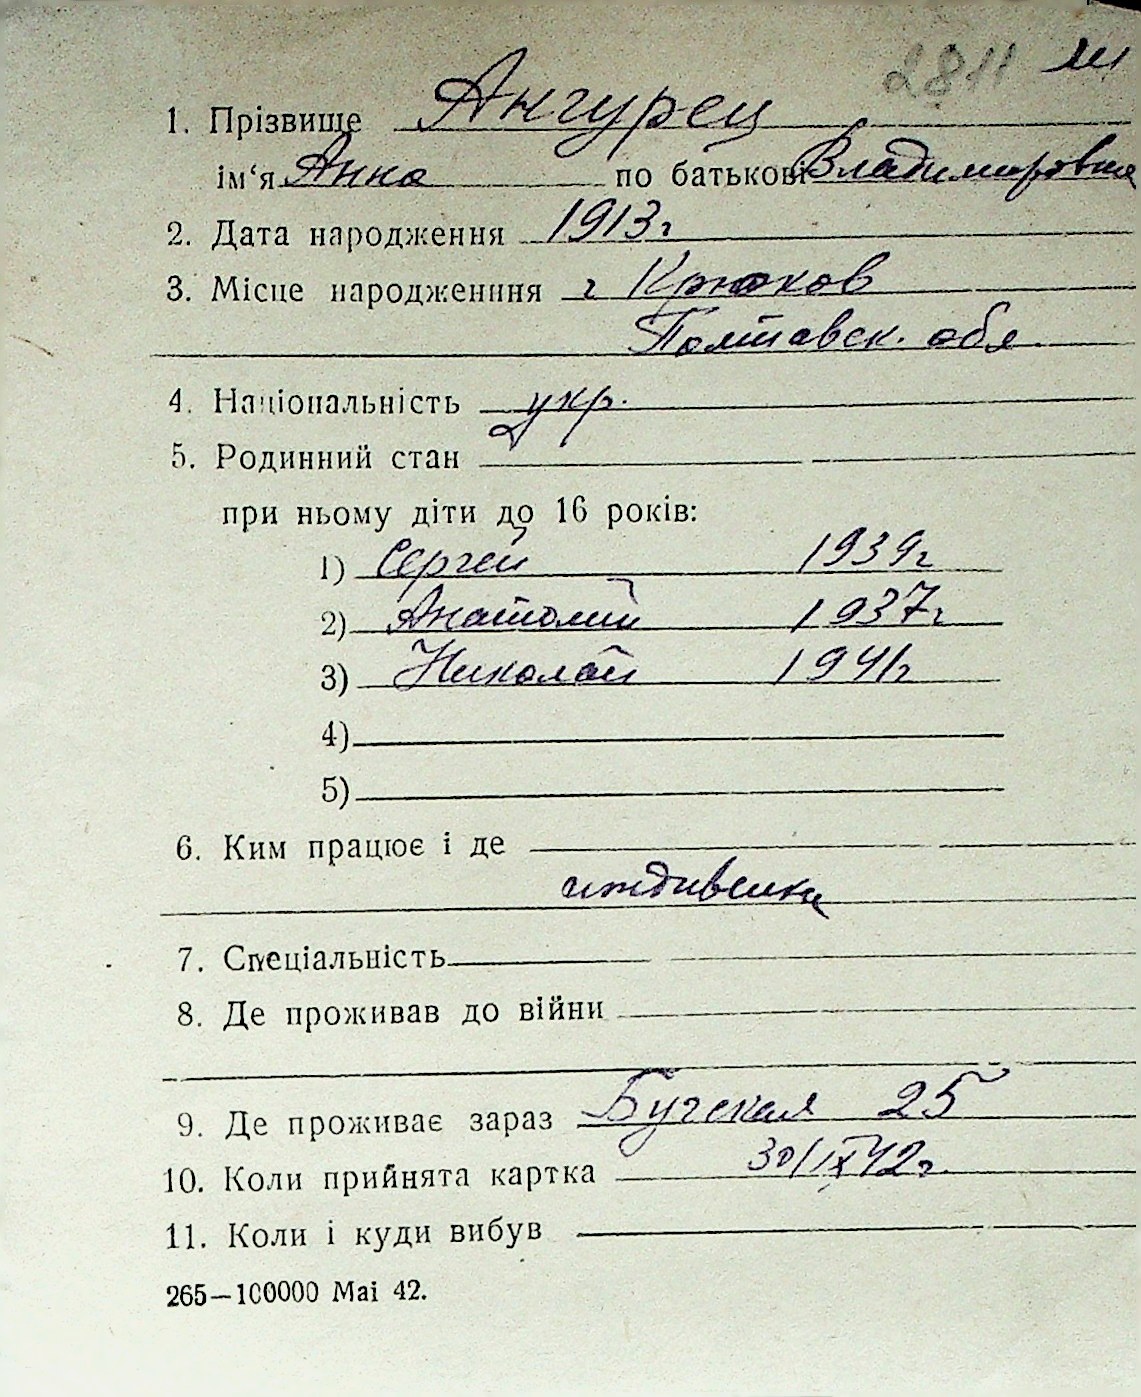 2811
1. Прізвище Ангурец
ім‘я Анна по батькові Владимировна
2. Дата народження 1913г
3. Місце народженння г Крюков
Полтавск. обл
4. Національність укр.
5. Родинний стан
при ньому діти до 16 років:
1) Сергей 1939г
2) Анатолий 1937г
3) Николай 1941г
4)
5)
6. Ким працює і де
иждивенка
7. Спеціальність
8. Де проживав до війни
9. Де проживає зараз 25
10. Коли прийнята картка 30/IX 42г.
11. Коли і куди вибув
265—100000 Mai 42.